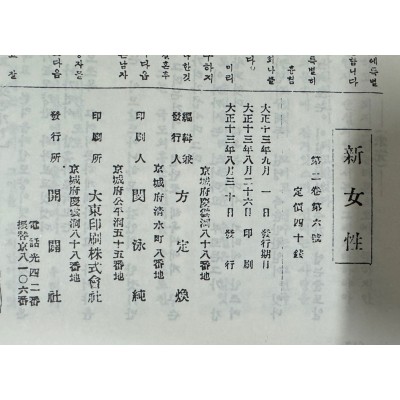 新女性
第二卷第六號
定價四十錢
大正十三年九月一日發行期日
大正十三年八月二十六日印刷
大正十三年八月三十日發行
京城府慶雲洞八十八番地
編輯兼發行人 方定煥
京城府淸水町八番地
印刷人 閔泳純
京城府公平洞五十五番地
印刷所 大東印刷株式會社
京城府慶雲洞八十八番地
發行所 開闢社
電話光四二番
振替京八一〇六番